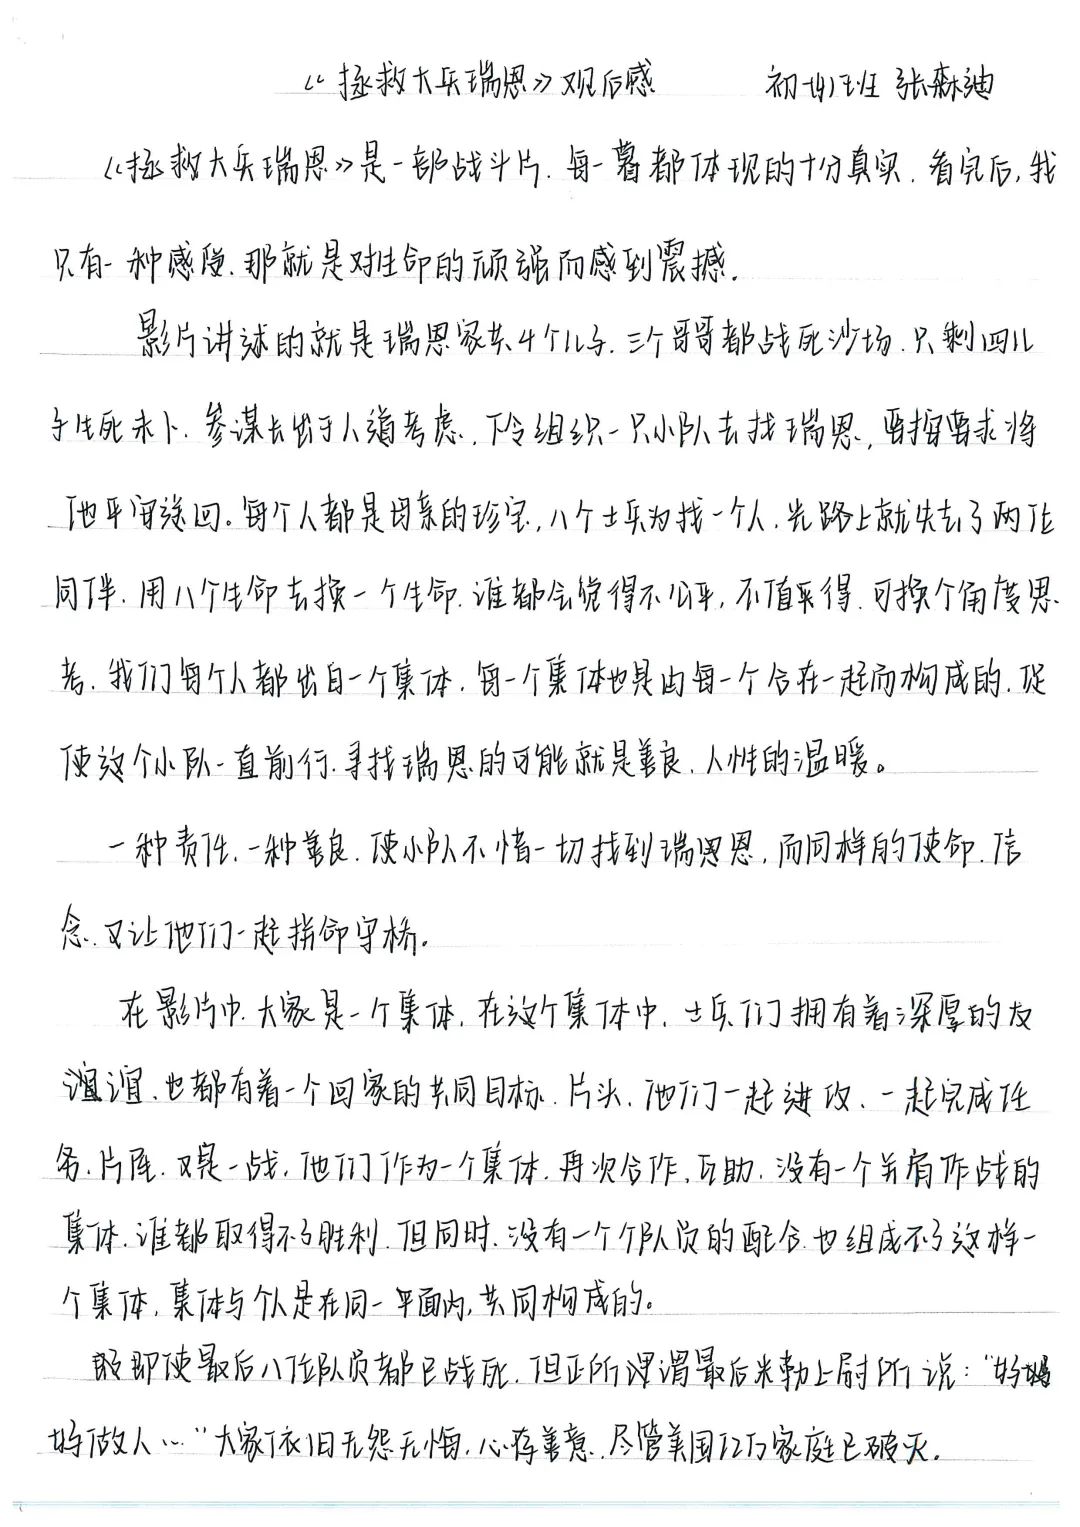 《拯救大兵瑞恩》观后感 初一(4)班 张森迪
《拯救大兵瑞恩》是一部战斗片，每一幕都体现的十分真实，看完后，我
只有一种感受，那就是对生命的顽强而感到震撼，
影片讲述的就是瑞恩家共4个儿子，三个哥哥都战死沙场，只剩四儿
子生死未卜，参谋长出于人道考虑，下令组织一只小队去找瑞恩，要按要求将
他平安送回。每个人都是母亲的珍宝，八个士兵为找一个人，光路上就失去了两位
同伴，用八个生命去换一个生命，谁都会觉得不公平，不值得，可换个角度思
考，我们每个人都出自一个集体，每一个集体也是由每一个合在一起而构成的，促
使这个小队一直前行，寻找瑞恩的可能就是善良，人性的温暖。
一种责任，一种善良，使小队不惜一切找到瑞恩，而同样的使命，信
念，又让他们一起拼命守桥。
在影片中，大家是一个集体，在这个集体中，士兵们拥有着深厚的友
谊，也都有着一个回家的共同目标，片头，他们一起进攻，一起完成任
务，片尾，又是一战，他们作为一个集体，再次合作，互助，没有一个并肩作战的
集体，谁都取得不了胜利，但同时，没有一个个队员的配合，也组成不了这样一
个集体，集体与个人是在同一平面内，共同构成的。
即使最后八位队员都已战死，但正所谓最后米勒上尉所说：“好
好做人…”大家依旧无怨无悔，心存善意，尽管美国12万家庭已破灭，